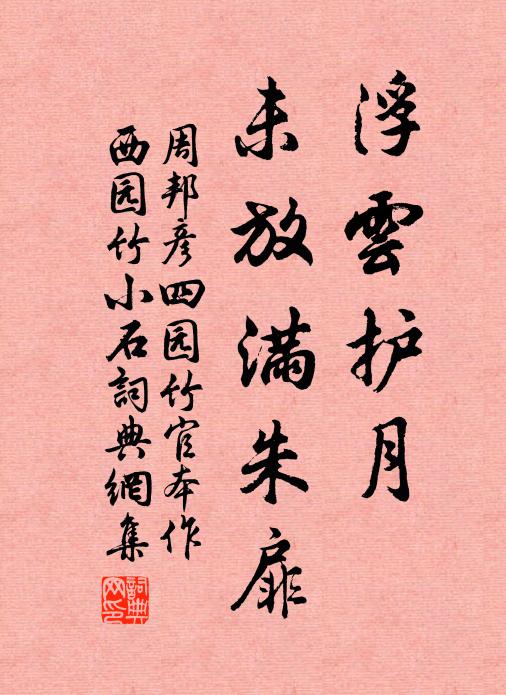 浮雲护月
未放满朱扉
周邦彦四园竹官本作
西园竹小石詞典網集
詞典网印